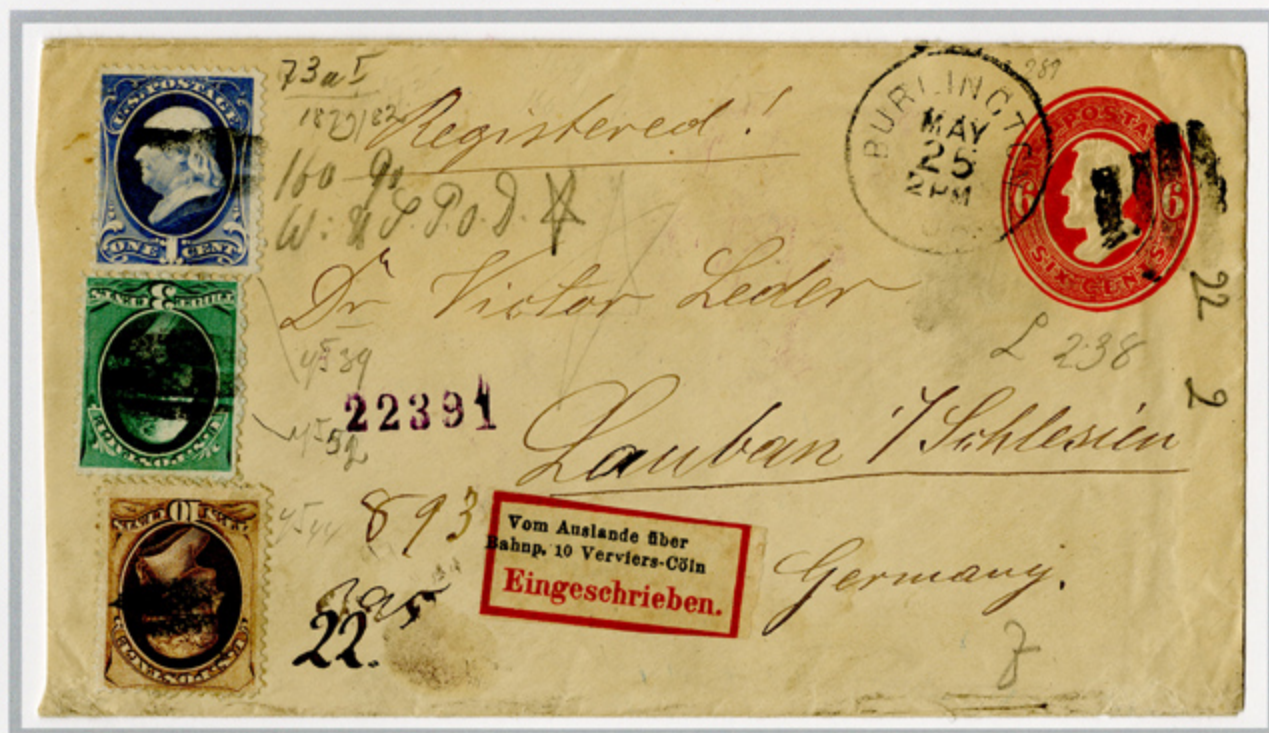 73a I
1879/82
Registered!
U.S. POSTAGE
ONE 1 CENT
160
W: U.S.P.O.D. ☆
BURLINGTON
MAY
25
2 PM
289
U.S. POSTAGE
6 6
SIX CENTS
Dr Victor Leder
22
2
L 238
3
39
22391
52
Lauban i/Schlesien
893
Vom Auslande über
Bahnp. 10 Verviers-Cöln
Eingeschrieben.
Germany.
10
22.
7